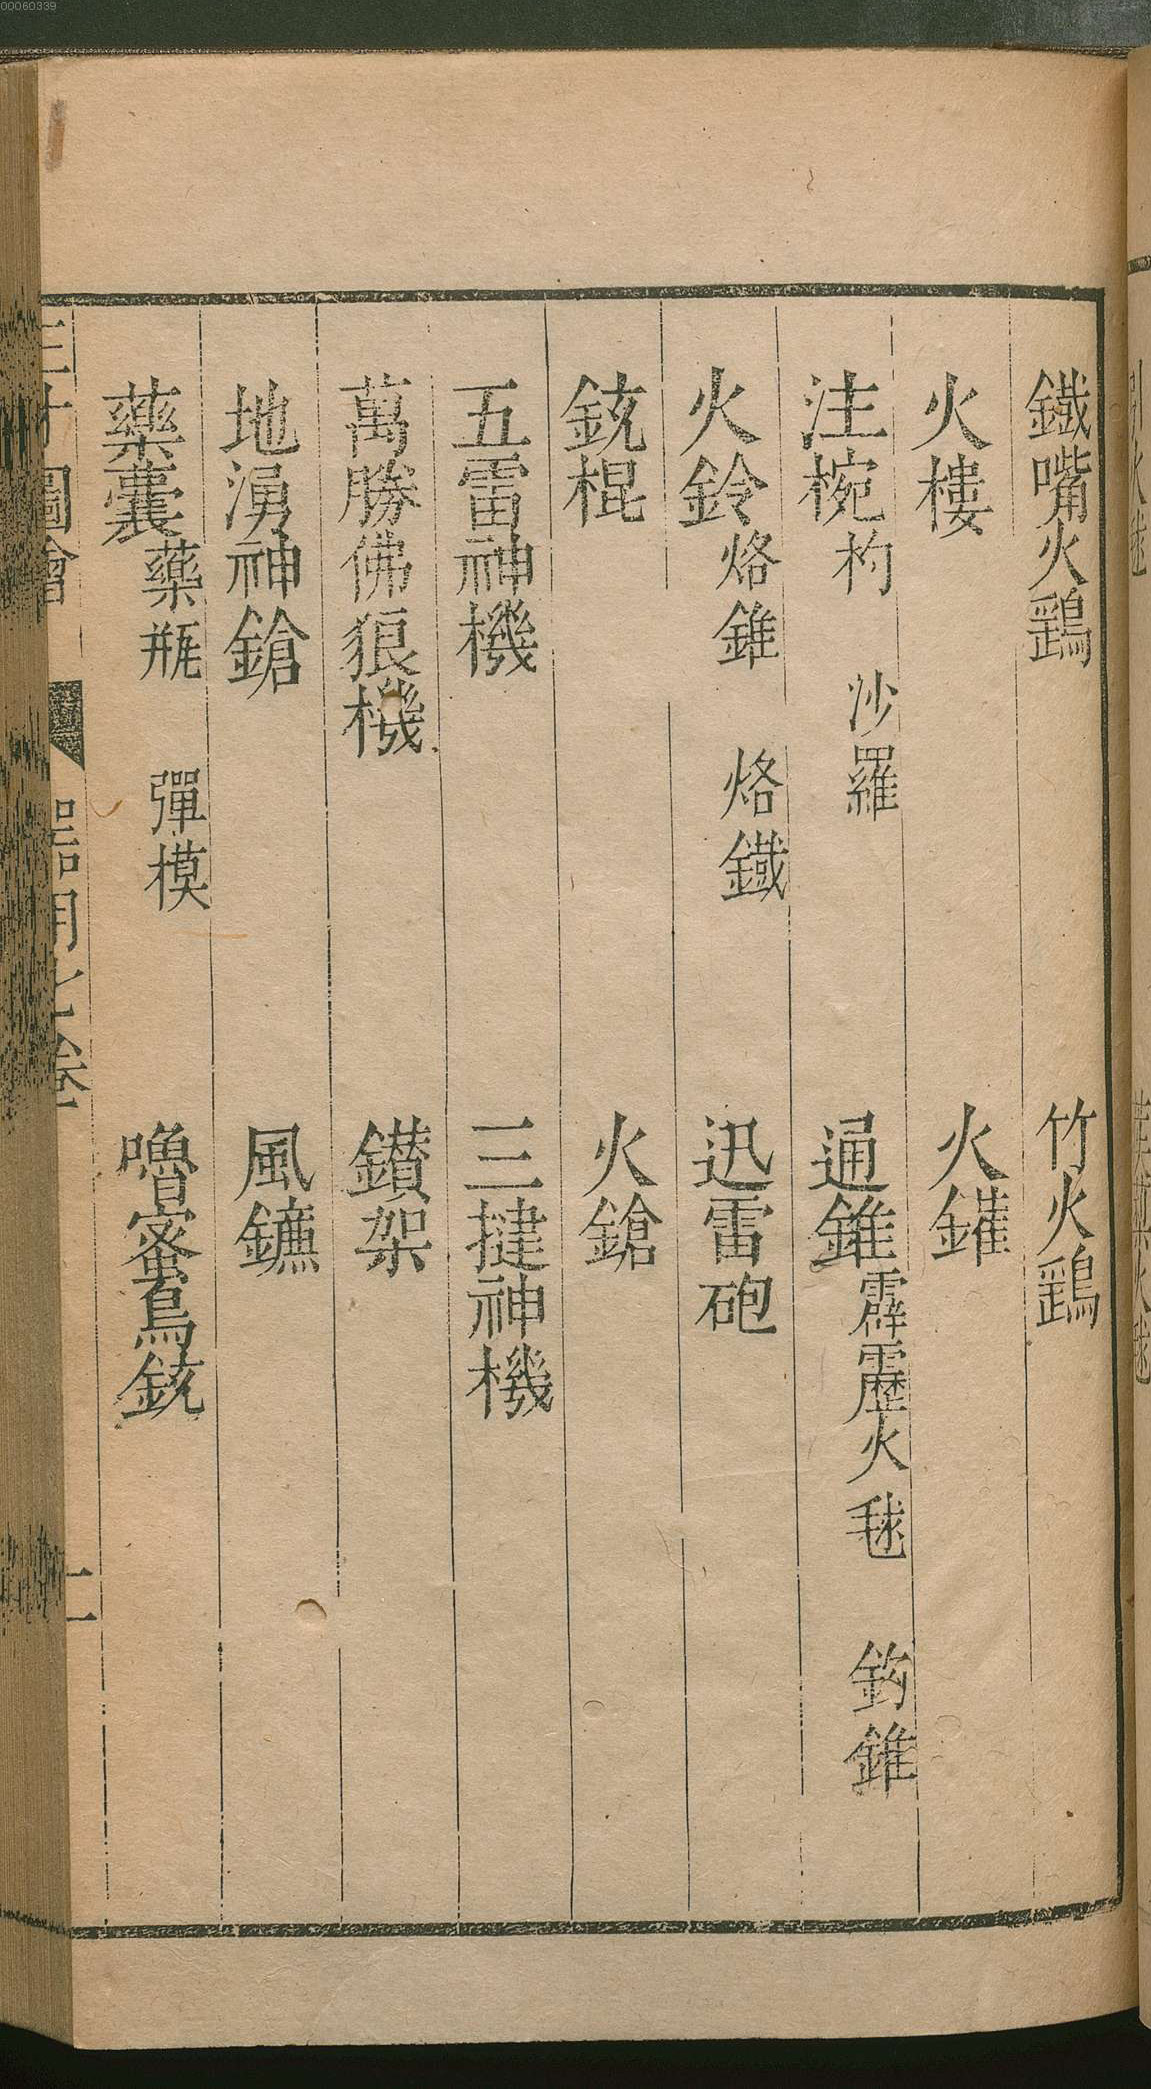 00060339
鐵嘴火鷂 竹火鷂
火摟 火鑵
注椀 杓 沙羅 通錐 霹靂火毬 鈎錐
火鈴 烙錐 烙鐵 迅雷砲
銃棍 火鎗
五雷神機 三揵神機
萬勝佛狼機 鑚架
地湧神鎗 風鑣
藥囊 藥瓶 彈模 嚕蜜鳥銃
三才圖會 器用七卷 二